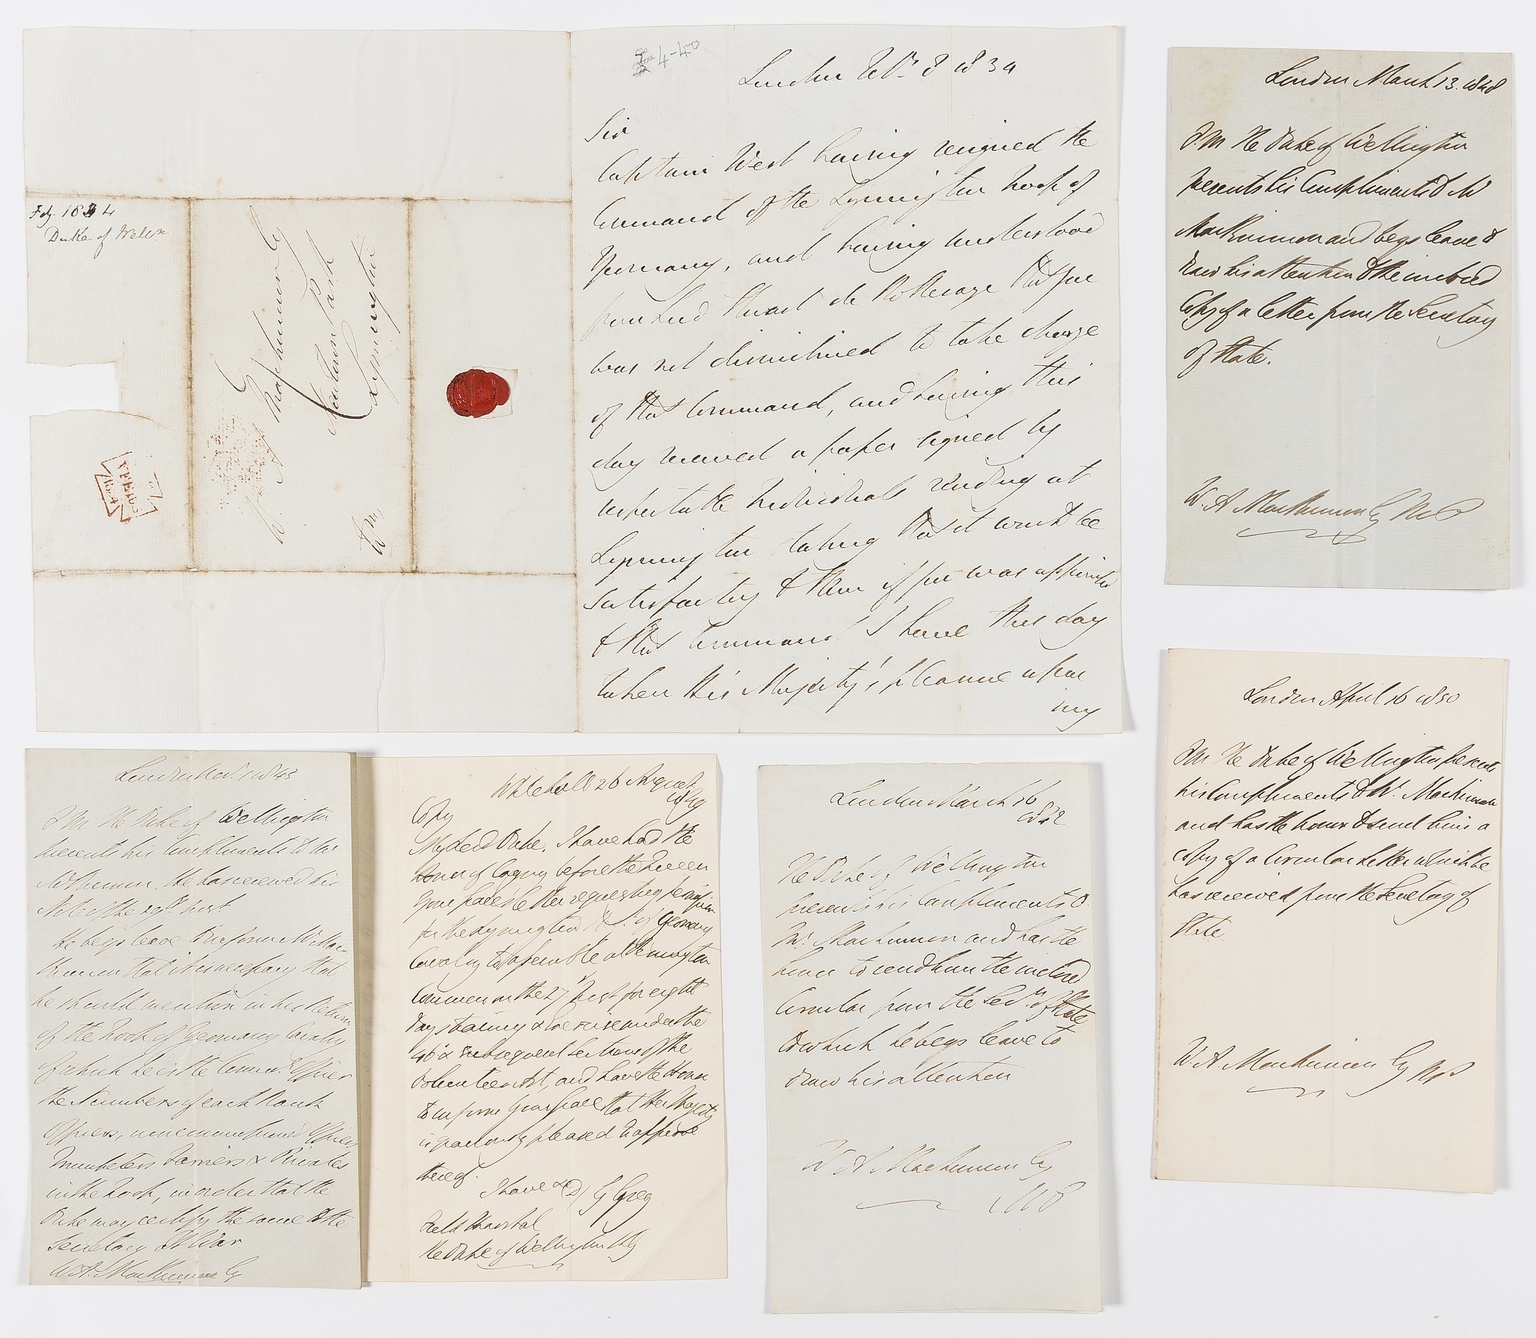 4-40
London Feby. 8 1834
Sir
Captain West having resigned the
Command of the Lymington Troop of
Yeomanry, and having understood
from Lord Stuart de Rothesay that you
was not disinclined to take charge
of that Command, and having this
day received a paper signed by
respectable Individuals residing at
Lymington stating that it would be
satisfactory to them if you was appointed
to that Command I have this day
taken His Majesty's pleasure upon
my
Feby 1834
Duke of Welln
W. A. Mackinnon Esq
Park
Lymington
London March 13. 1848
F M The Duke of Wellington
presents his Compliments to Mr
MacKinnon and begs leave to
draw his attention to the inclosed
Copy of a letter from the Secretary
of State.
W A MacKinnon Esq MP
London April 16 1850
F M The Duke of Wellington presents
his Compliments to Mr. MacKinnon
and has the honor to send him a
copy of a Circular Letter which he
has received from the Secretary of
State
W A MacKinnon Esq MP
London 1 1845
F M The Duke of Wellington
presents his Compliments to Mr
McKinnon. He has received his
Note of the 29th Inst
He begs leave to inform Mr Mac
Kinnon that it is necessary that
he should mention in his Return
of the Troop of Yeomanry Cavalry
of which he is the Command. Officer
the Numbers of each Rank
Officers, noncommissioned Officers
Trumpeters Farriers & Privates
in the Troop, in order that the
Duke may certify the same to the
Secretary at War
W A. MacKinnon Esq
Whitehall 26 August
Copy
My Lord Duke. I have had the
Honor of laying before the Queen
Your Grace's letter requesting permission
for the Lymington of Yeomanry
Cavalry to assemble at Lymington
Common on the 27th Inst for eight
days training & exercise under the
46th & subsequent Sections of the
Volunteer Act, and have the Honor
to inform Your Grace that Her Majesty
is graciously pleased to approve
thereof.
I have &c G Grey
Field Marshal
The Duke of Wellington KG
London March 16
1842
The Duke of Wellington
presents his Compliments to
Mr. MacKinnon and has the
honor to send him the inclosed
Circular from the Secy. of State
to which he begs leave to
draw his attention
W A MacKinnon Esq
MP